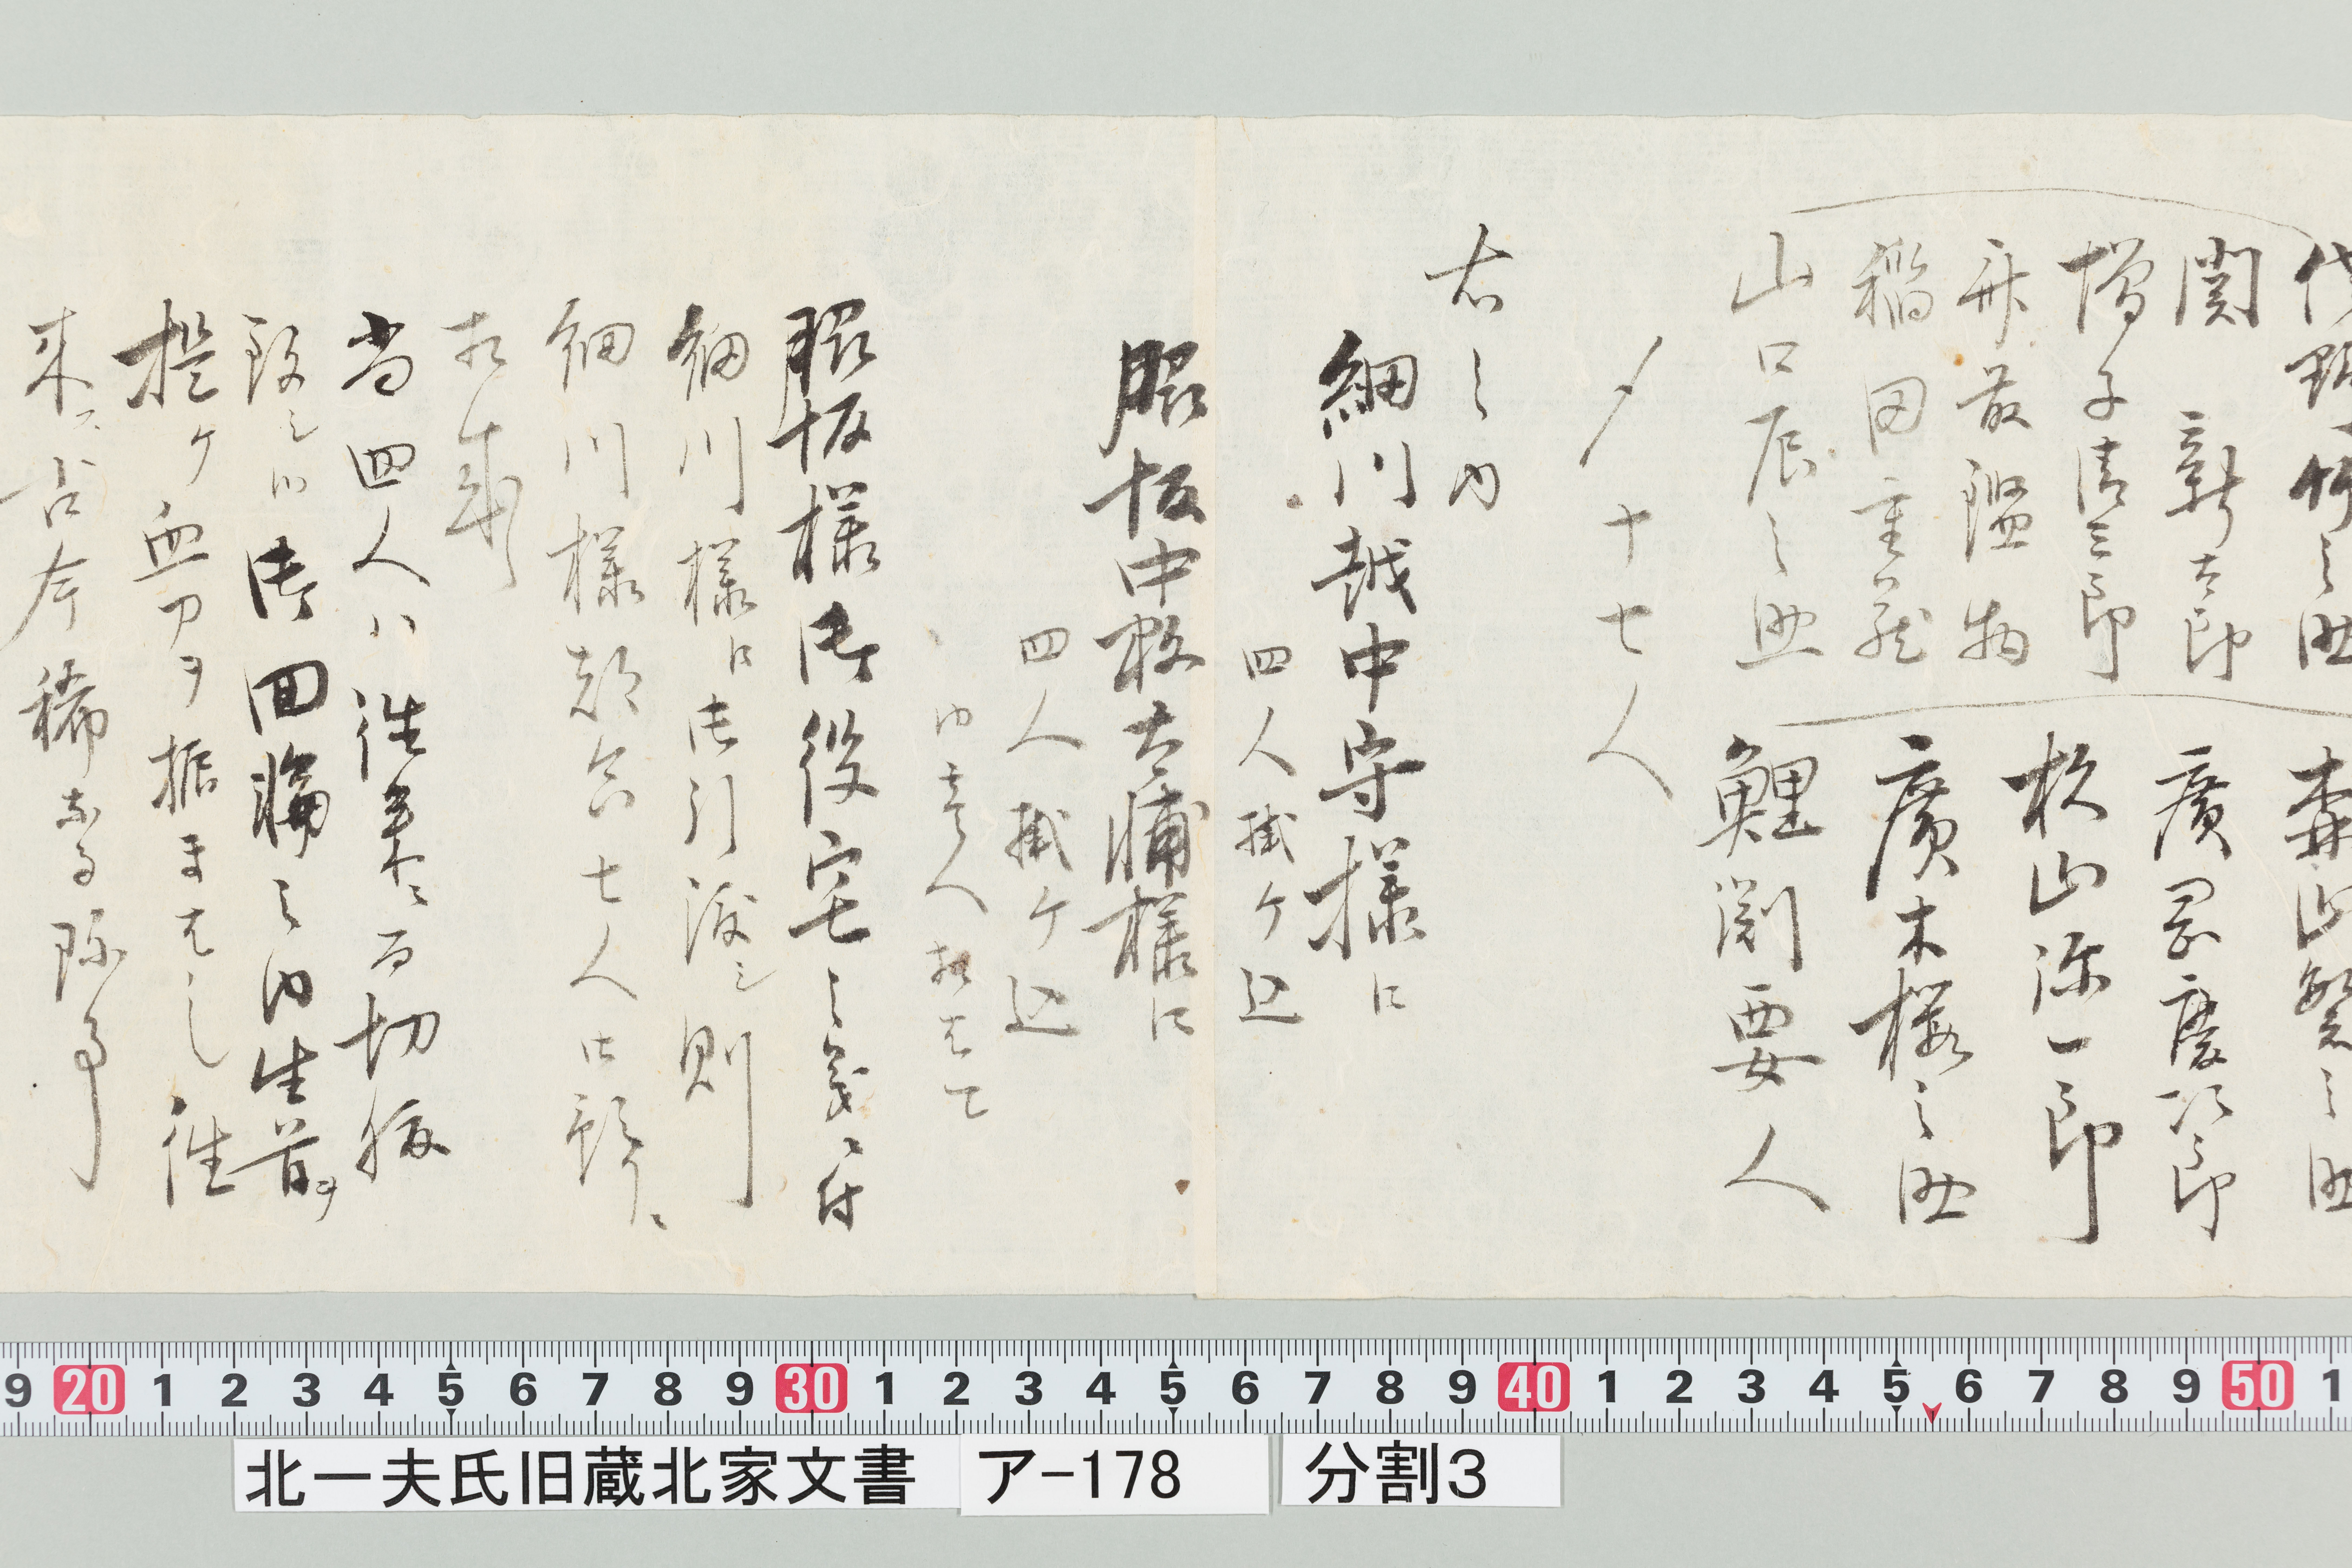 関 新太郎
増子清三郎
斉藤監物
稲田重蔵
山口辰之助
森山繁之助
廣岡慶次郎
杦山弥一郎
廣木桜之助
鯉渕要人
〆十七人
右之内
細川越中守様江
四人掛ケ込
脇坂中務大輔様江
四人掛ケ込
内壱人相はて
脇坂様御役宅之義ニ付
細川様江御引渡シ則
細川様都合七人御預リニ
相成
当四人ハ往来ニ而切腹
致シ御回輪之内生首ヲ
提ケ血刀ヲ振まはし往
来ス古今稀なる珍事
9 20 1 2 3 4 5 6 7 8 9 30 1 2 3 4 5 6 7 8 9 40 1 2 3 4 5 6 7 8 9 50 1
北一夫氏旧蔵北家文書 ア-178 分割3